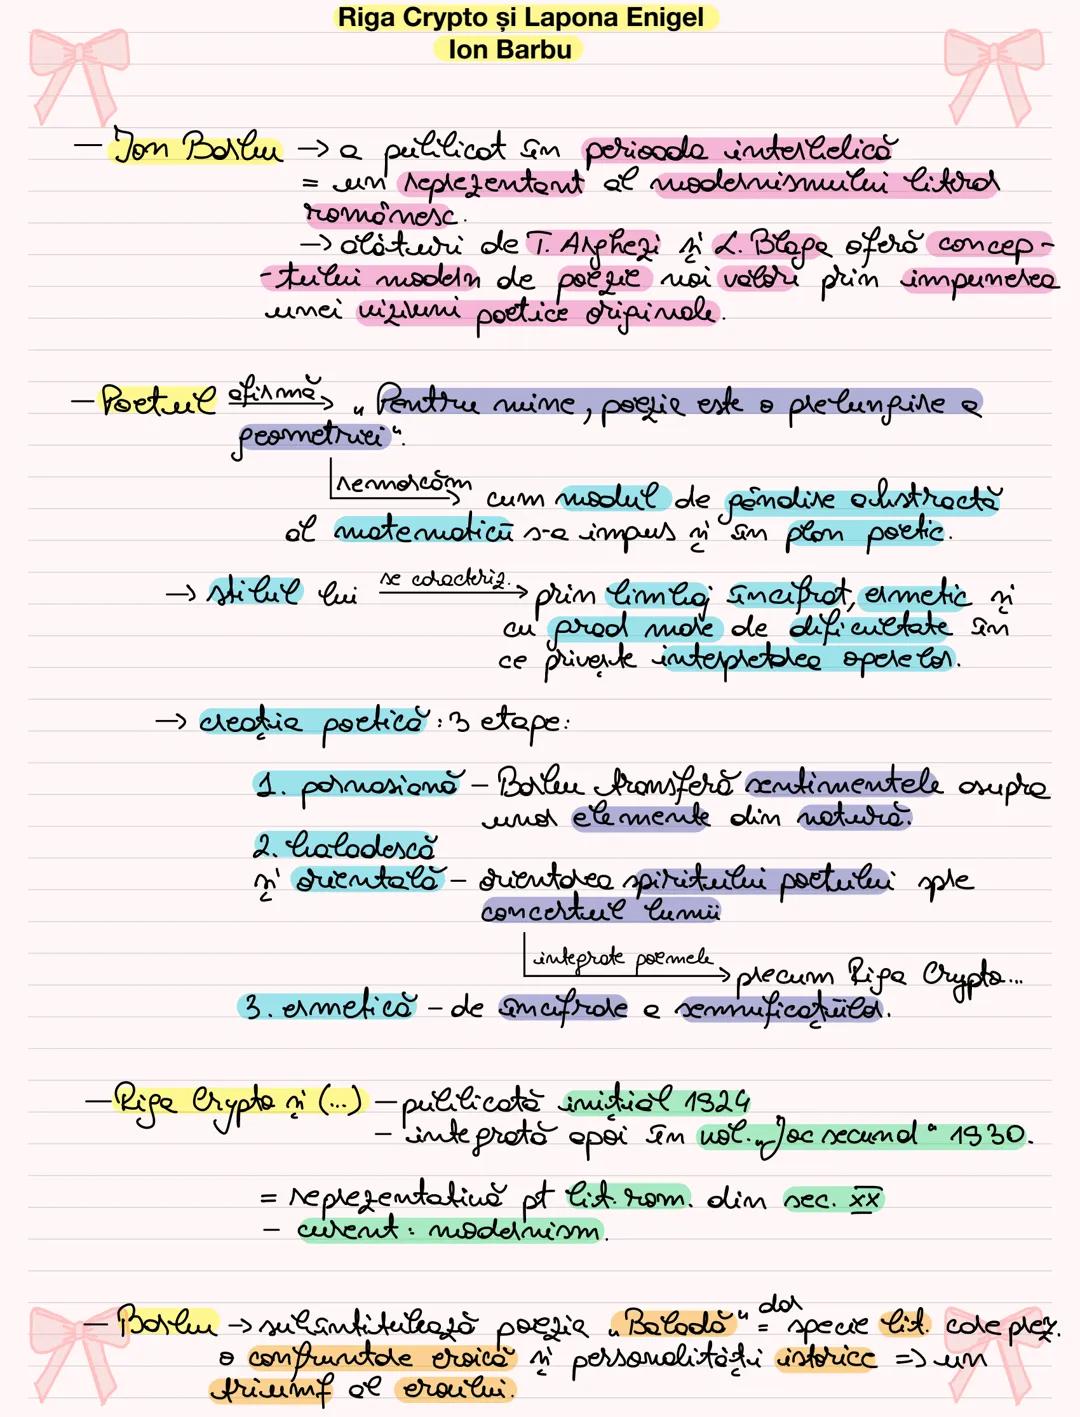 Riga Crypto și Lapona Enigel
Ion Barbu
— Ion Barbu → a publicat în perioada interbelică
= un reprezentant al modernismului literar
românesc.
→ alături de T. Arghezi și L. Blaga oferă concep-
-tului modern de poezie noi valori prin impunerea
unei viziuni poetice originale.
— Poetul afirmă → „Pentru mine, poezia este o prelungire a
geometriei“.
remarcăm → cum modul de gândire abstractă
al matematicii s-a impus și în plan poetic.
→ stilul lui se caracteriz. → prin limbaj încifrat, ermetic și
cu grad mare de dificultate în
ce privește interpretarea operelor.
→ creația poetică: 3 etape:
1. parnasiană – Barbu transferă sentimentele asupra
unor elemente din natură.
2. baladescă
și orientală – orientarea spiritului poetului spre
concertul lumii
integrate poemele → precum Riga Crypto...
3. ermetică – de încifrare a semnificațiilor.
— Riga Crypto și (...) – publicată inițial 1924
– integrată apoi în vol. „Joc secund“ 1930.
= reprezentativă pt lit. rom. din sec. XX
– curent: modernism.
— Barbu → subîntitulează poezia „Baladă“ dar = specie lit. care prez.
o confruntare eroică și personalități istorice => un
triumf al eroului.